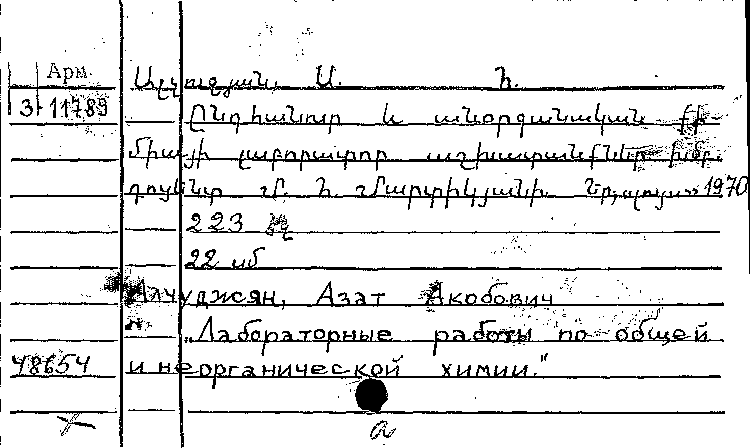 Арм.
3 11789
Ալչուջյան, Ա. Հ.
Ընդհանուր և անօրգանական քի-
միայի լաբորատոր աշխատանքներ խմբ.
դոցենտ Մ. Հ. Մարտիկյանի. Եր., "Լույս" 1970
223 էջ
22 սմ
Алчуджян, Азат Акобович
"Лабораторные работы по общей
48654 и неорганической химии."
a